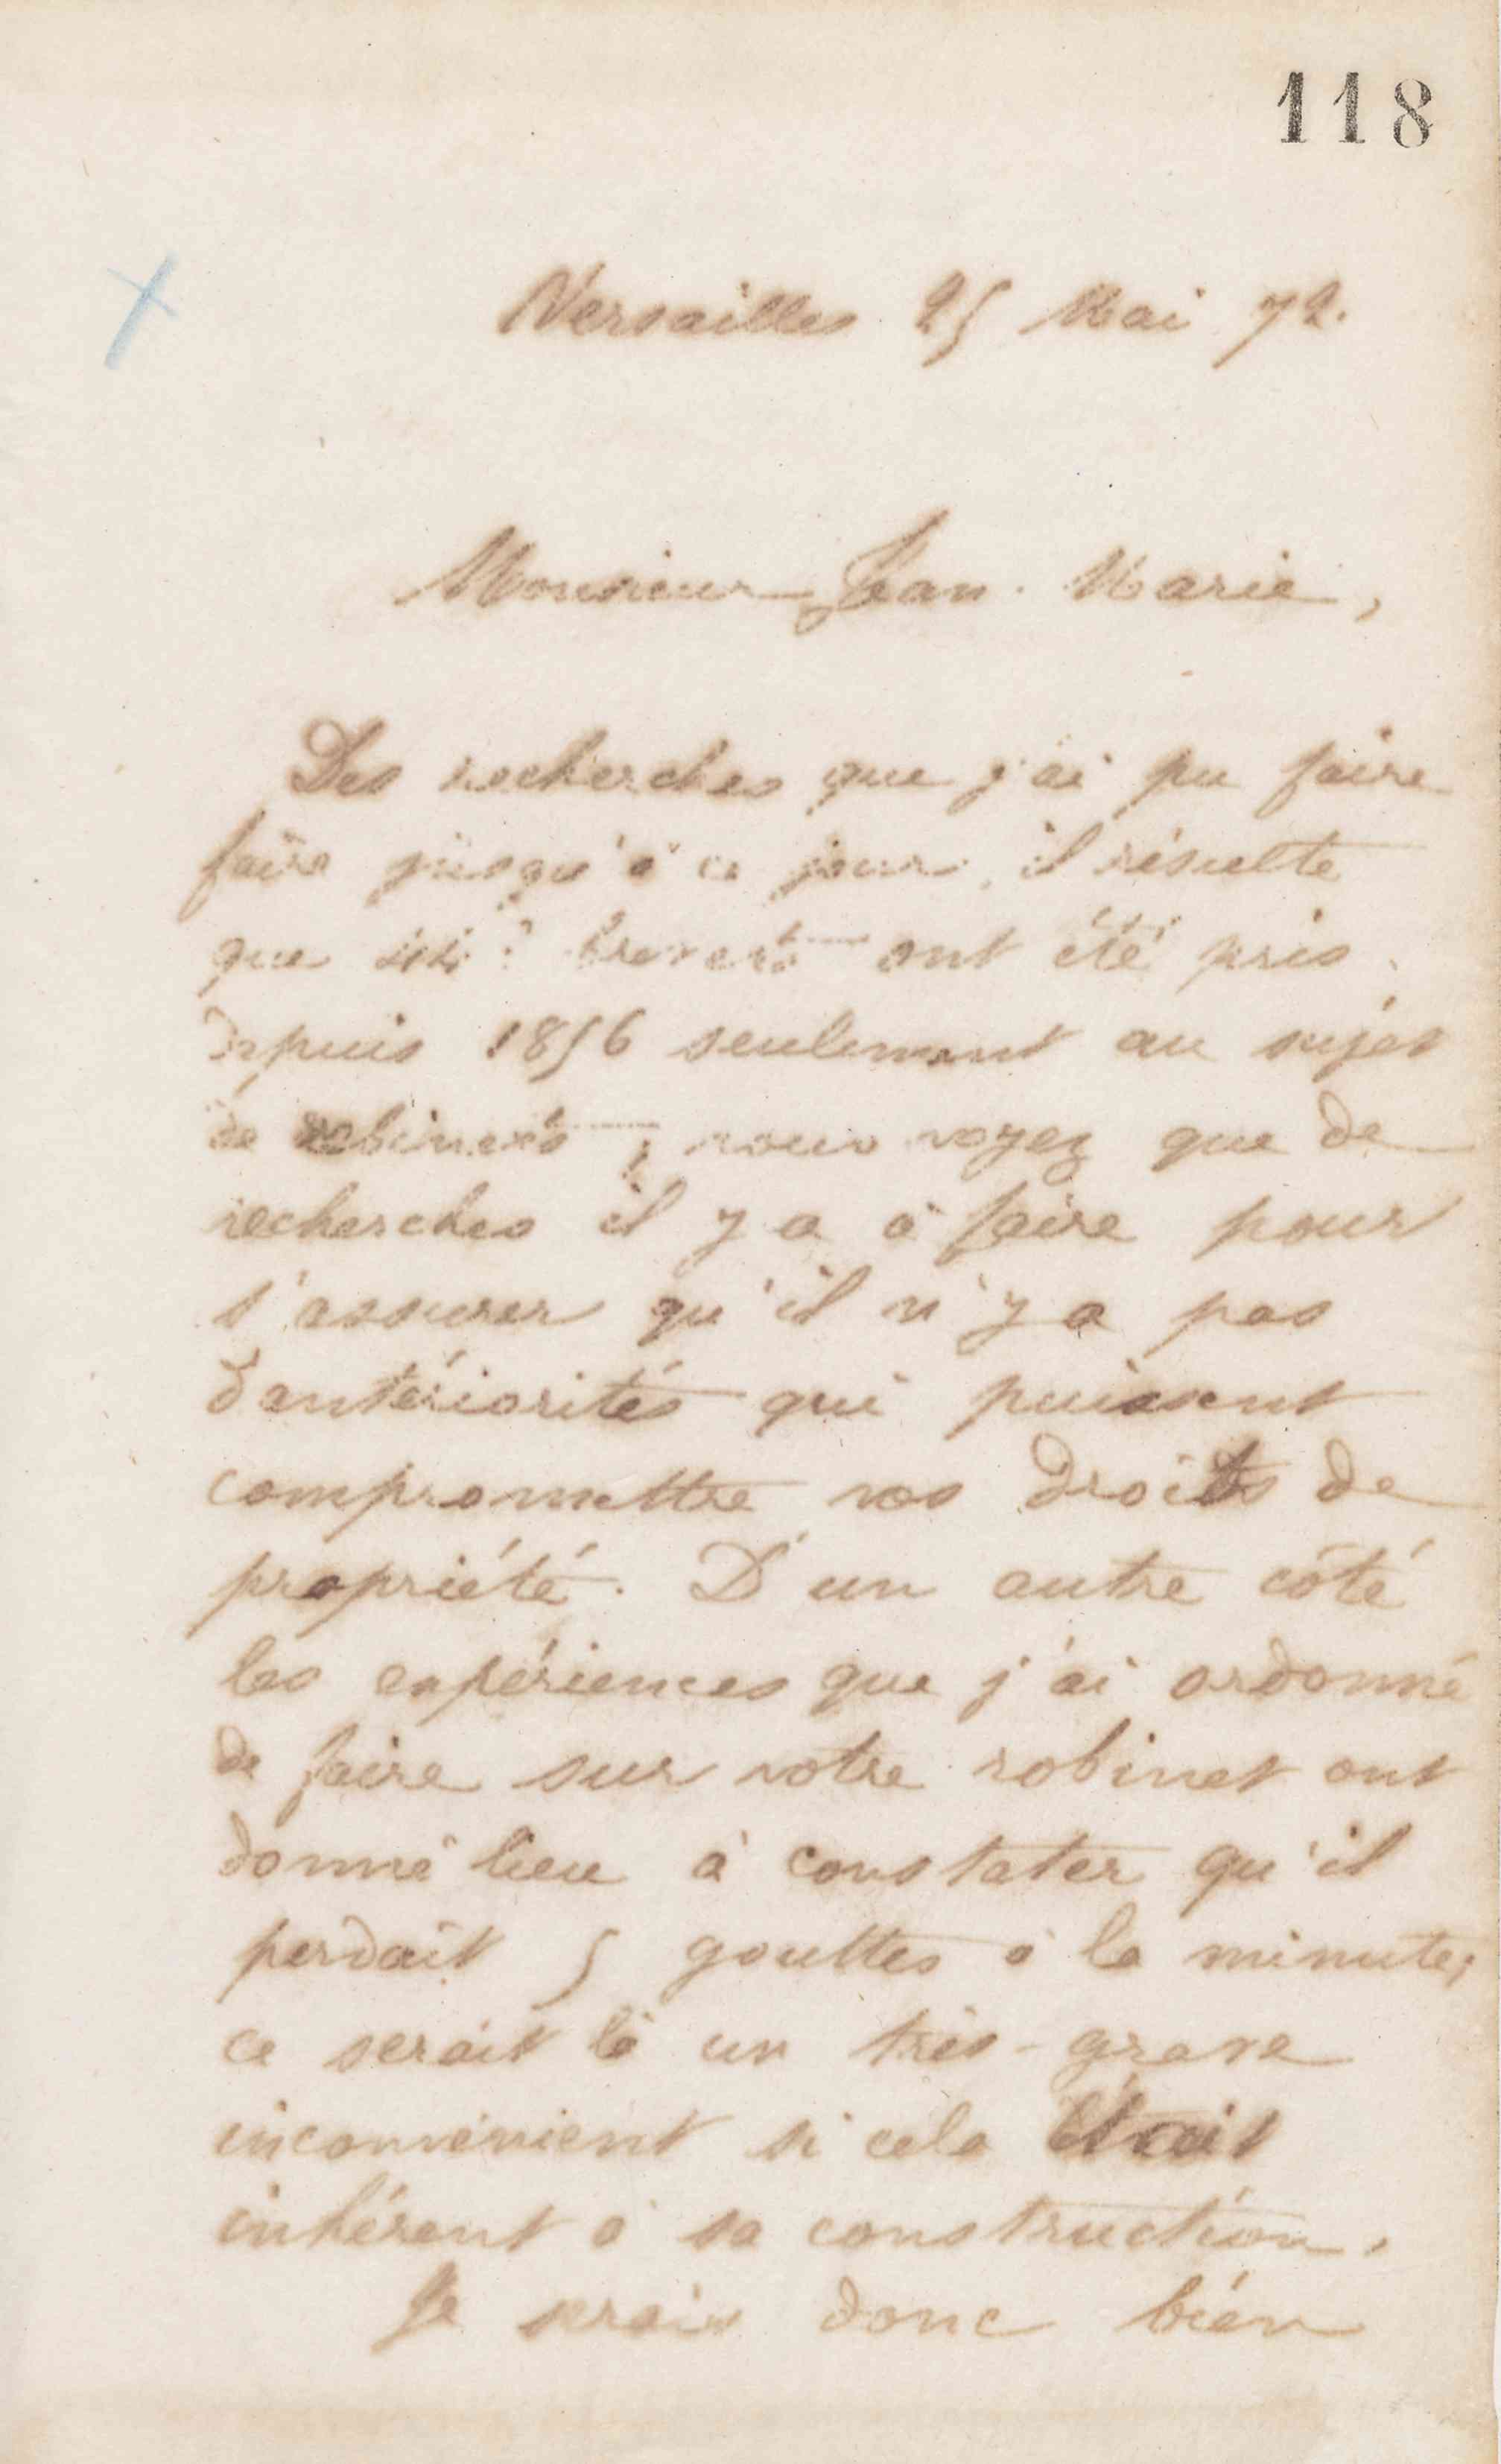 118
Versailles 25 Mai 72.
Monsieur Jean-Marie,
Des recherches que j'ai pu faire
faire jusqu'à ce jour, il résulte
que brevets ont été pris
depuis 1856 seulement au sujet
de robinets, vous voyez que de
recherches il y a à faire pour
s'assurer qu'il n'y a pas
d'antériorités qui puissent
compromettre vos droits de
propriété. D'un autre côté
les expériences que j'ai ordonné
de faire sur votre robinet ont
donné lieu à constater qu'il
perdait 5 gouttes à la minute,
ce serait là un très-grave
inconvénient si cela était
inhérent à sa construction.
Je serais donc bien